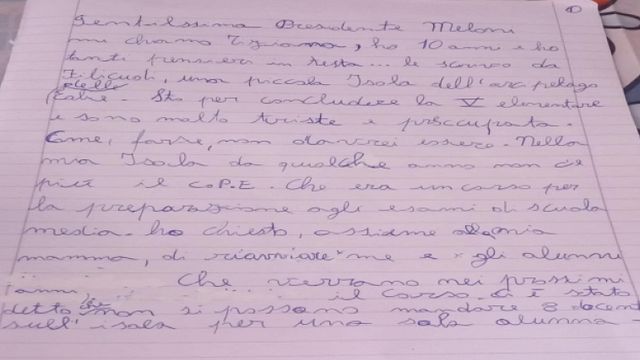 ①
Gentilissima Presidente Meloni
mi chiamo Tiziana, ho 10 anni e ho
tanti pensieri in testa... le scrivo da
Filicudi, una piccola Isola dell'arcipelago
delle Eolie. Sto per concludere la V elementare
e sono molto triste e preoccupata.
Come, forse, non dovrei essere. Nella
mia Isola da qualche anno non c'è
più il C.P.E. Che era un corso per
la preparazione agli esami di scuola
media. ho chiesto, assieme alla mia
mamma, di riavviare x me e x gli alunni
che verranno nei prossimi
anni il corso. Ci è stato
detto che non si possono mandare 8 docenti
sull'isola per una sola alunna -